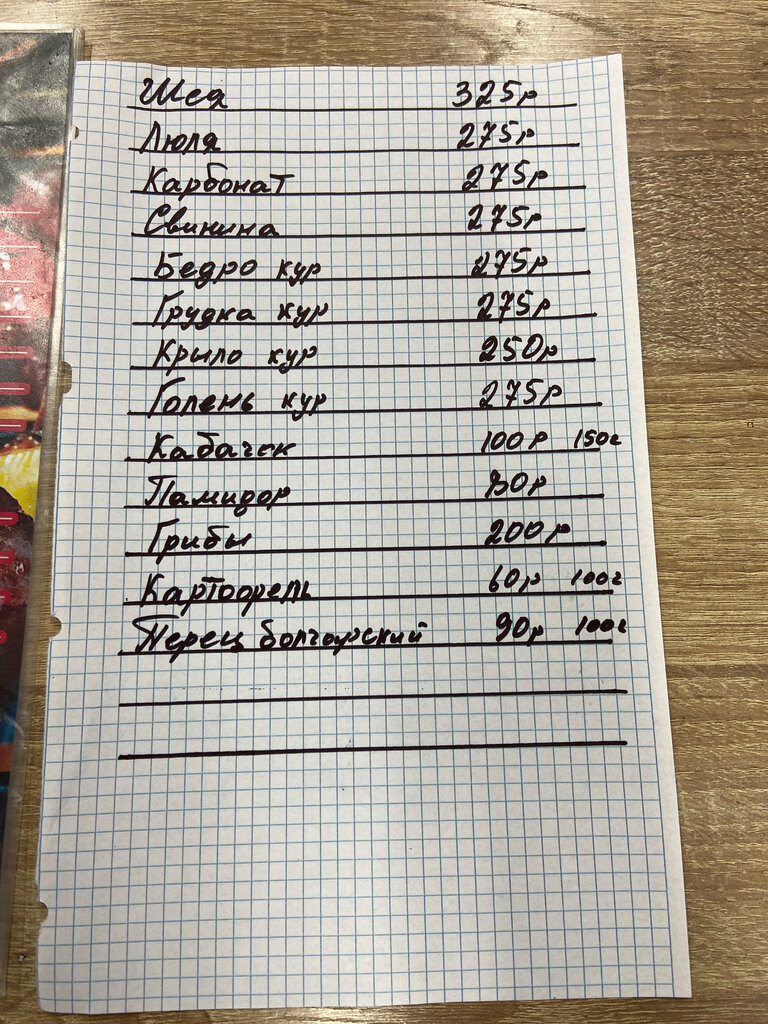 Шея 325р
Люля 275р
Карбонат 275р
Свинина 275р
Бедро кур 275р
Грудка кур 275р
Крыло кур 250р
Голень кур 275р
Кабачек 100р 150г
Памидор 80р
Грибы 200р
Картофель 60р 100г
Перец болгарский 90р 100г